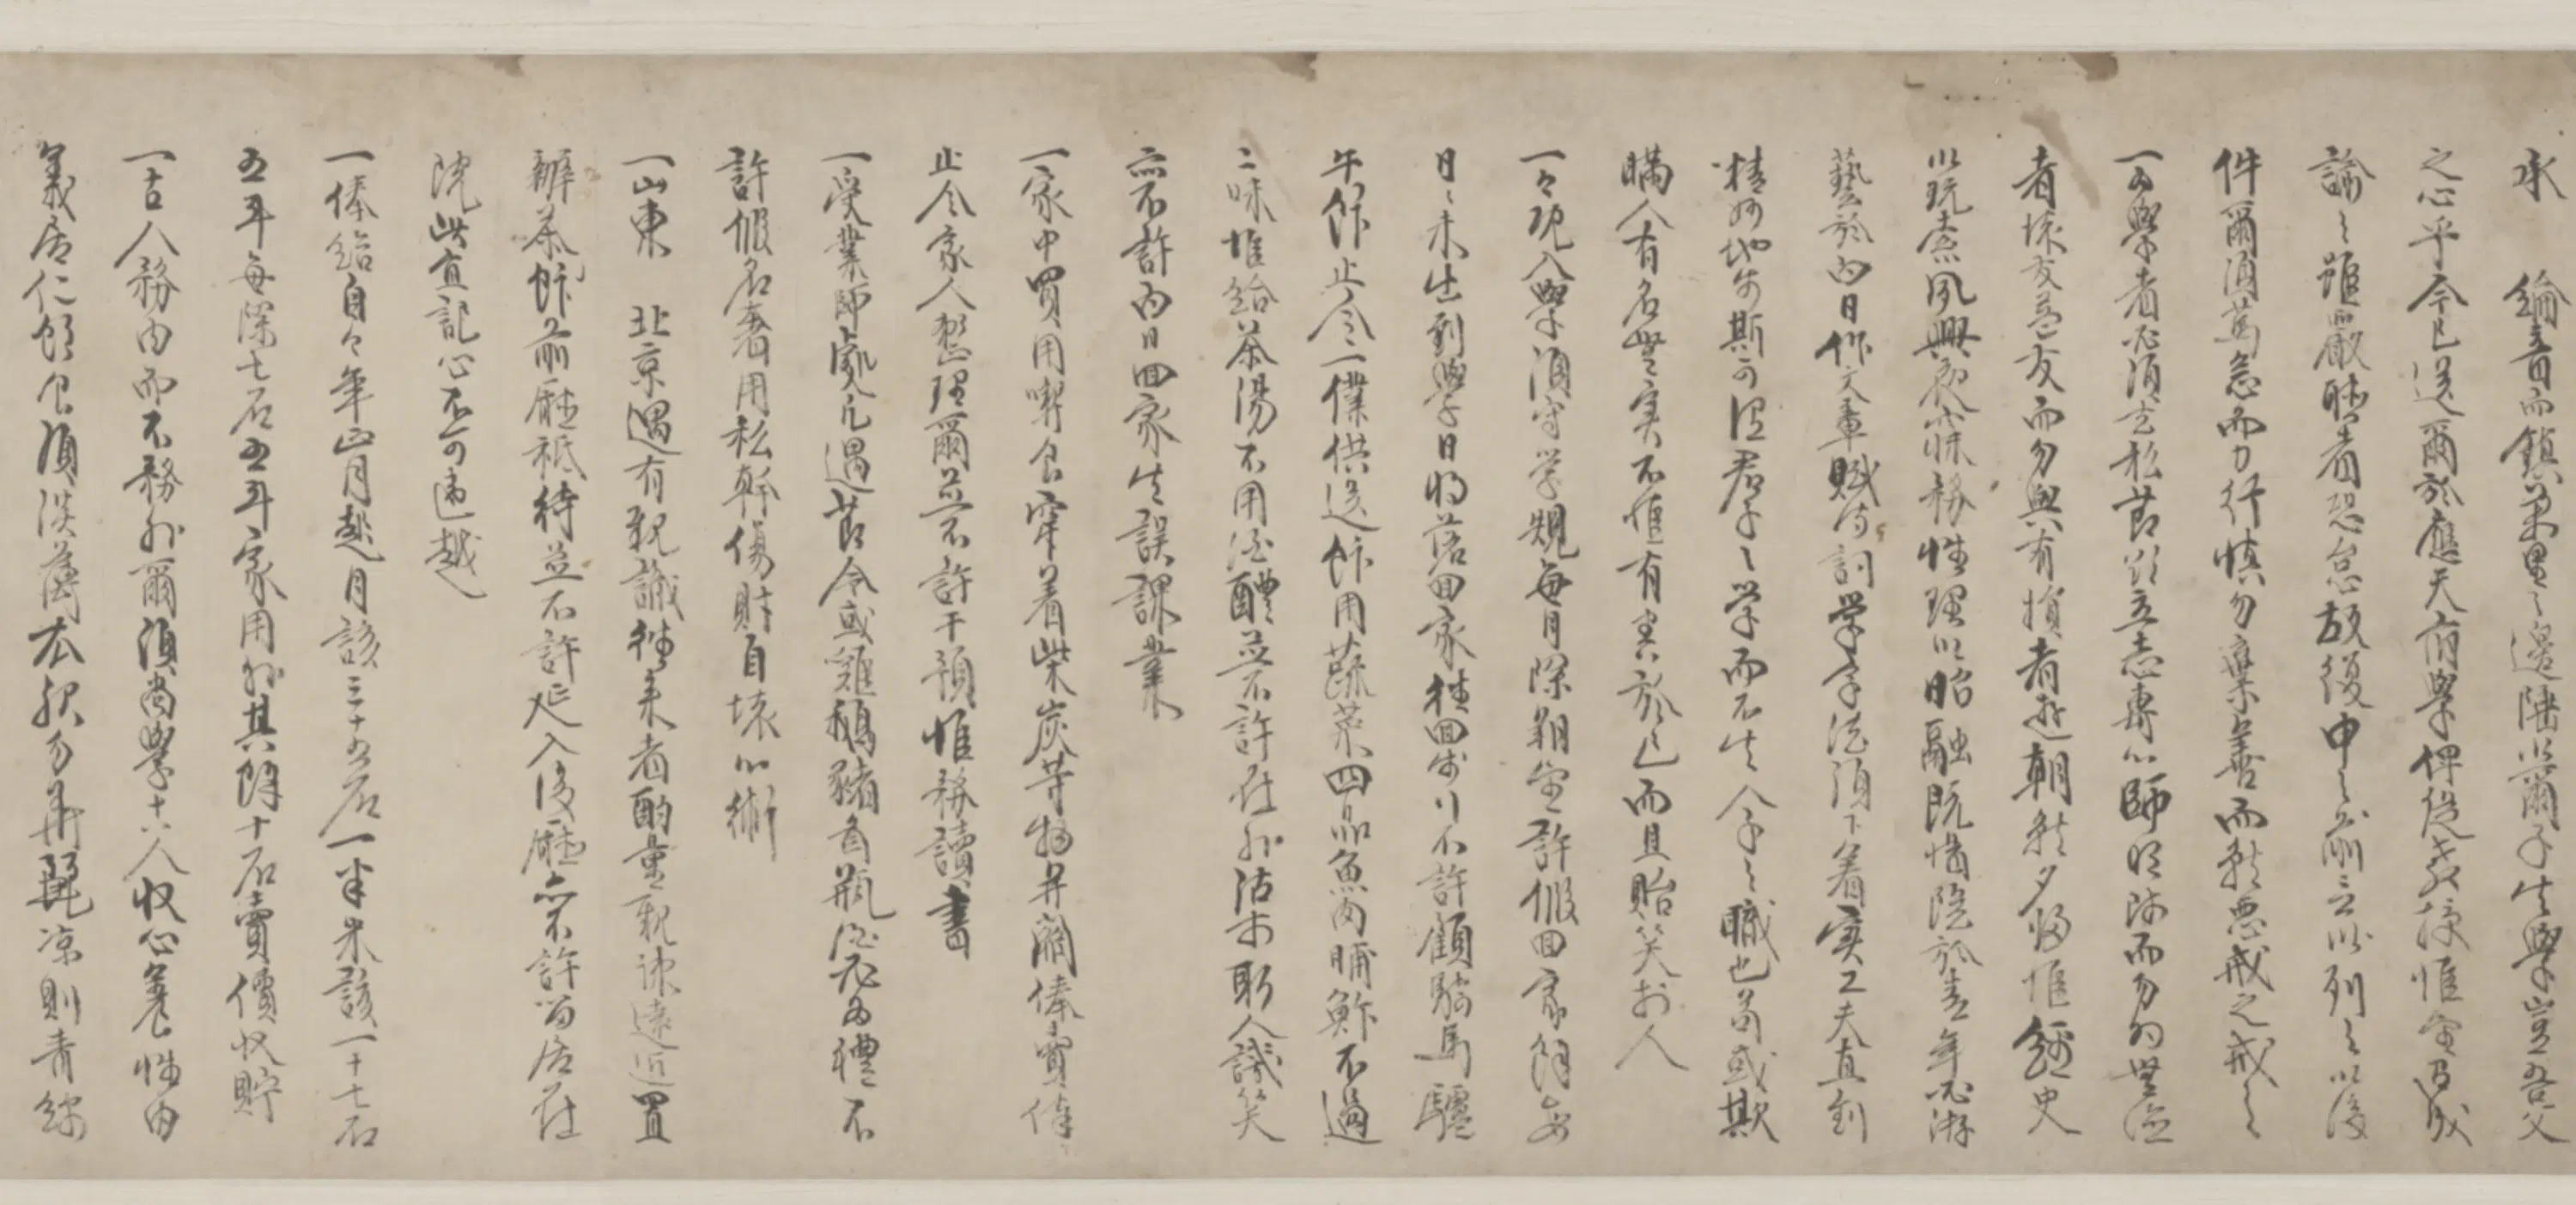 承 綸音而鎮萬里之邊陲以爾子生學豈吾父
之心乎今已送爾於應天府學俾從教授惟命乃成
諭之雖嚴聽者恐怠故復申之前言以列之以後
件爾須萬急而力行慎勿棄善而就惡戒之戒之
一為學者必須去私苟以立志專以師明師而勿無益
者壞友益友而勿與有損者遊朝就夕歸惟經史
以玩索夙興夜寐務性理以昭融既惜陰於青年必游
藝於四日作文章賦詩詞學字法須下着實工夫直到
精妙地步斯可謂君子之學而不失人子之職也苟或欺
瞞人有名無實不惟有害於己而且貽笑於人
一々既入學須守學規每月除朔望許假回家餘每
日々未出到學日將落回家往回步行不許顧騎馬驢
午飯止令一僕供送飯用蔬菜四品魚肉脯鮓不過
二味惟給茶湯不用酒醴並不許在外沽市取人譏笑
亦不許向日回家生誤課業
一家中買用喫食穿着柴炭等物并關俸賣俸
止令家人整理爾並不許干預惟務讀書
一受業師處凡遇節令或雞鵝豬首瓶酒為禮不
許假名奢用私幹傷財自壞心術
一山東 北京遇有親識往來者酌量親疎遠近置
辦茶飯前廳祗待並不許延入後廳亦不許留居在
院此宜記心不可違越
一俸給自今年正月起月該三十五石一半米該一十七石
五斗每除七石五斗家用外其餘十石賣價收貯
一古人務內而不務外爾須尚學古人收心養性由
義居仁飲食須淡薄衣服勿華麗凉則青絲